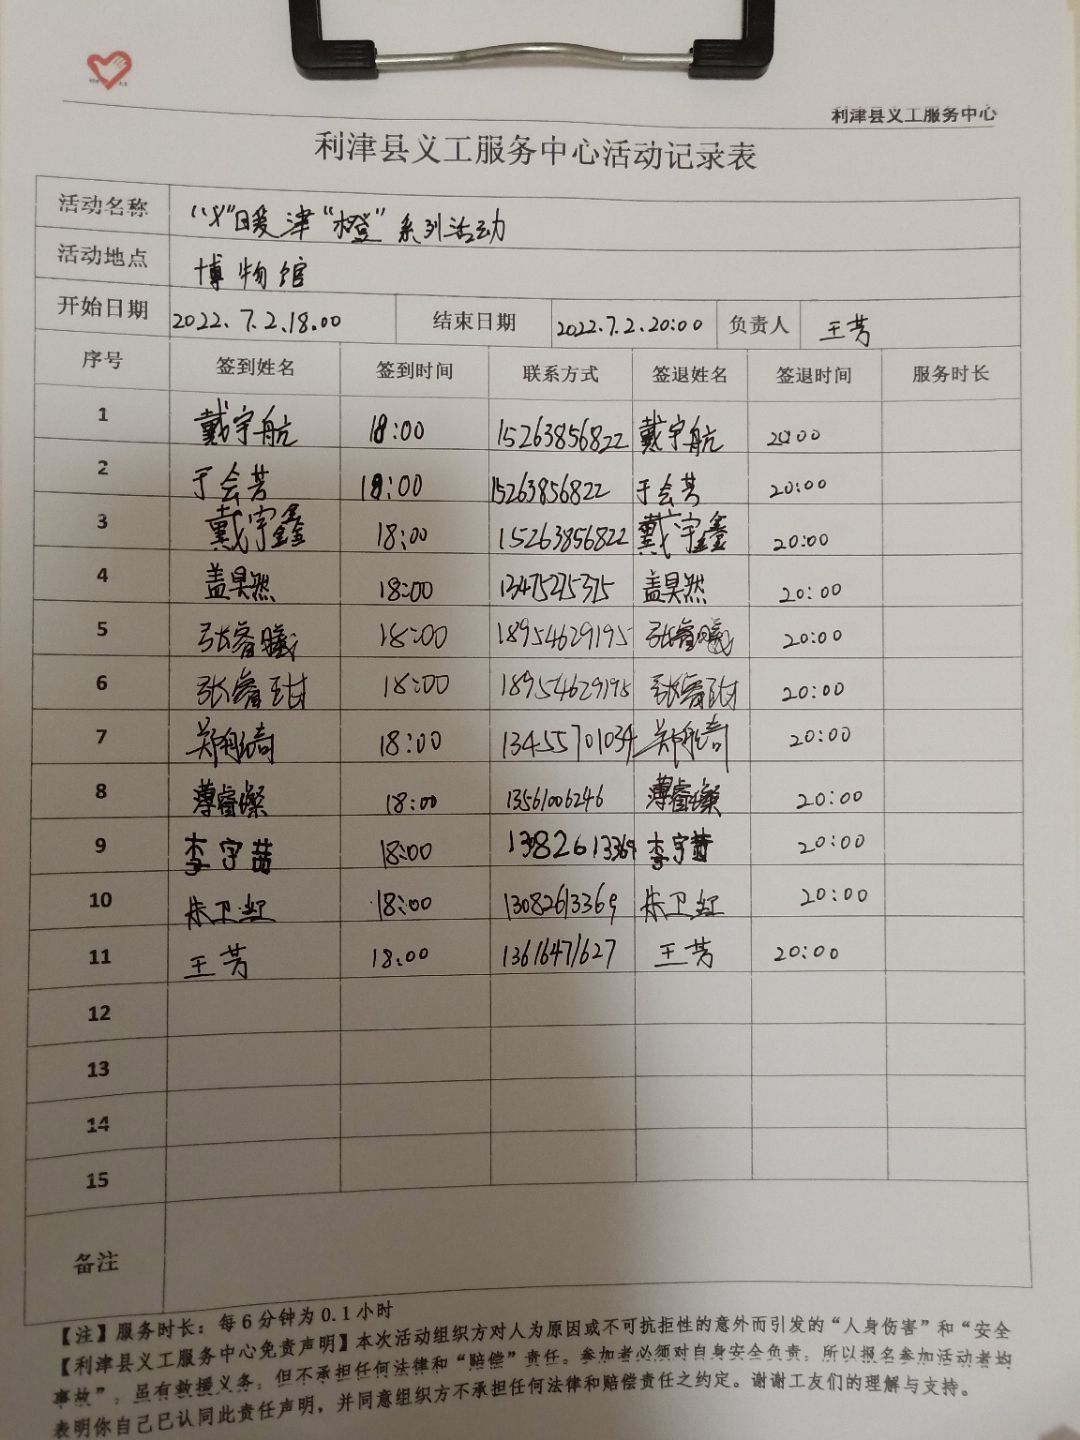 利津县义工服务中心
利津县义工服务中心活动记录表
活动名称 “义”暖津“橙”系列活动
活动地点 博物馆
开始日期 2022.7.2.18.00 结束日期 2022.7.2.20:00 负责人 王芳
序号 签到姓名 签到时间 联系方式 签退姓名 签退时间 服务时长
1 戴宇航 18:00 15263856822 戴宇航 20:00
2 于会芳 18:00 15263856822 于会芳 20:00
3 戴宇鑫 18:00 15263856822 戴宇鑫 20:00
4 盖昊然 18:00 13475275375 盖昊然 20:00
5 张睿曦 18:00 18954629195 张睿曦 20:00
6 张睿 18:00 18954629195 张睿 20:00
7 郑 18:00 13455701034 郑 20:00
8 薄睿璨 18:00 13561006246 薄睿璨 20:00
9 李宇茜 18:00 1382613369 李宇茜 20:00
10 朱卫红 18:00 13082613369 朱卫红 20:00
11 王芳 18:00 13616471627 王芳 20:00
12
13
14
15
备注
【注】服务时长：每6分钟为0.1小时
【利津县义工服务中心免责声明】本次活动组织方对人为原因或不可抗拒性的意外而引发的“人身伤害”和“安全
事故”，虽有救援义务，但不承担任何法律和“赔偿”责任。参加者必须对自身安全负责，所以报名参加活动者均
表明你自己已认同此责任声明，并同意组织方不承担任何法律和赔偿责任之约定。谢谢工友们的理解与支持。